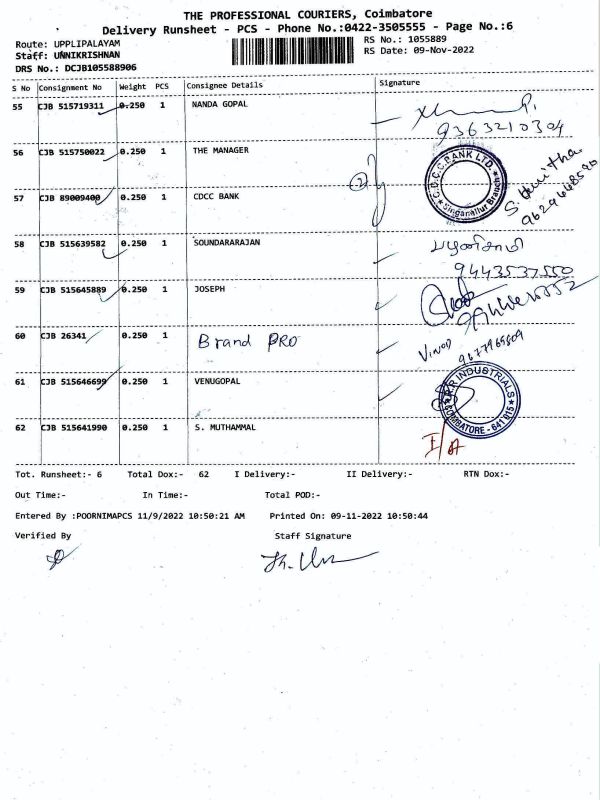 THE PROFESSIONAL COURIERS, Coimbatore
Delivery Runsheet - PCS - Phone No.:0422-3505555 - Page No.:6
Route: UPPLIPALAYAM RS No.: 1055889
Staff: UNNIKRISHNAN RS Date: 09-Nov-2022
DRS No.: DCJB105588906
S No Consignment No Weight PCS Consignee Details Signature
55 CJB 515719311 0.250 1 NANDA GOPAL
9363210304
56 CJB 515750022 0.250 1 THE MANAGER
C.D.C.C. BANK LTD.
Singanallur Branch
57 CJB 89009400 0.250 1 CDCC BANK
58 CJB 515639582 0.250 1 SOUNDARARAJAN
பழனிசாமி
9443537550
59 CJB 515645889 0.250 1 JOSEPH
60 CJB 26341 1 0.250 1 Brand PRO
Vinod
9677965609
61 CJB 515646699 0.250 1 VENUGOPAL
INDUSTRIALS
COIMBATORE - 641 015
62 CJB 515641990 0.250 1 S. MUTHAMMAL
Tot. Runsheet:- 6 Total Dox:- 62 I Delivery:- II Delivery:- RTN Dox:-
Out Time:- In Time:- Total POD:-
Entered By :POORNIMAPCS 11/9/2022 10:50:21 AM Printed On: 09-11-2022 10:50:44
Verified By Staff Signature